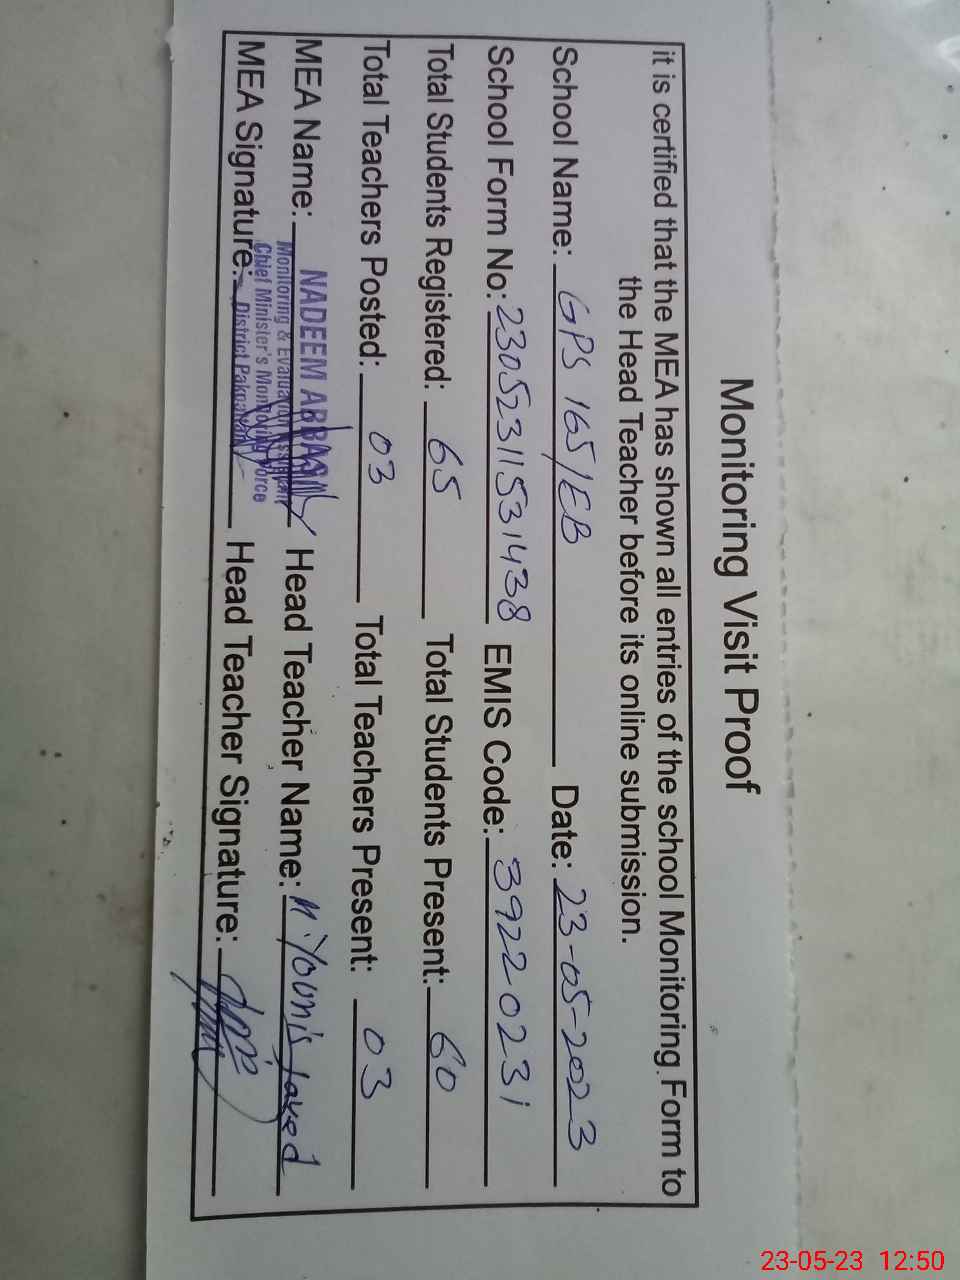 Monitoring Visit Proof
it is certified that the MEA has shown all entries of the school Monitoring Form to
the Head Teacher before its online submission.
School Name: GPS 165/EB Date: 23-05-2023
School Form No: 23052311531438 EMIS Code: 39220231
Total Students Registered: 65 Total Students Present: 60
Total Teachers Posted: 03 Total Teachers Present: 03
MEA Name: NADEEM ABBAS Head Teacher Name: M. Younis Javed
Monitoring & Evaluation Assistant
Chief Minister's Monitoring Force
MEA Signature: District Pakpattan Head Teacher Signature:
23-05-23 12:50